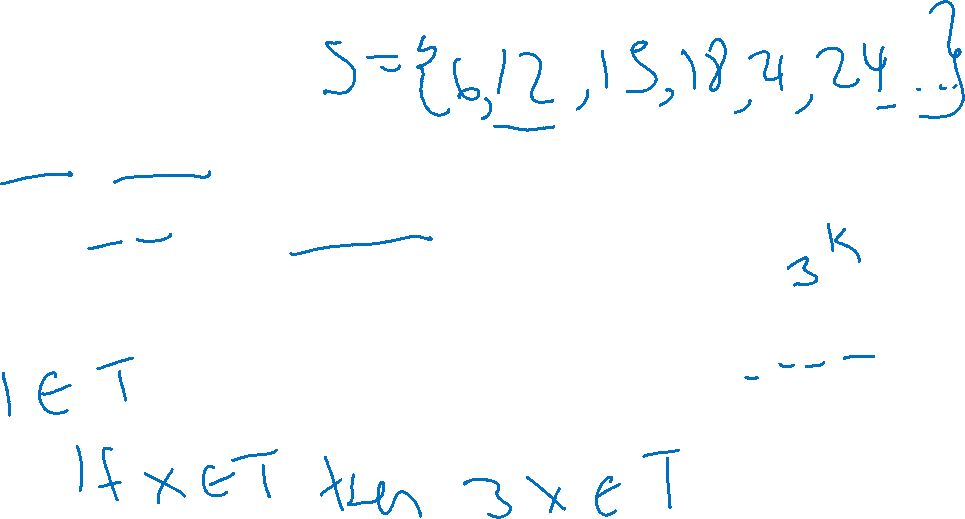 S={6,12,15,18,21,24...}
3^K
1∈T
If x∈T then 3x∈T